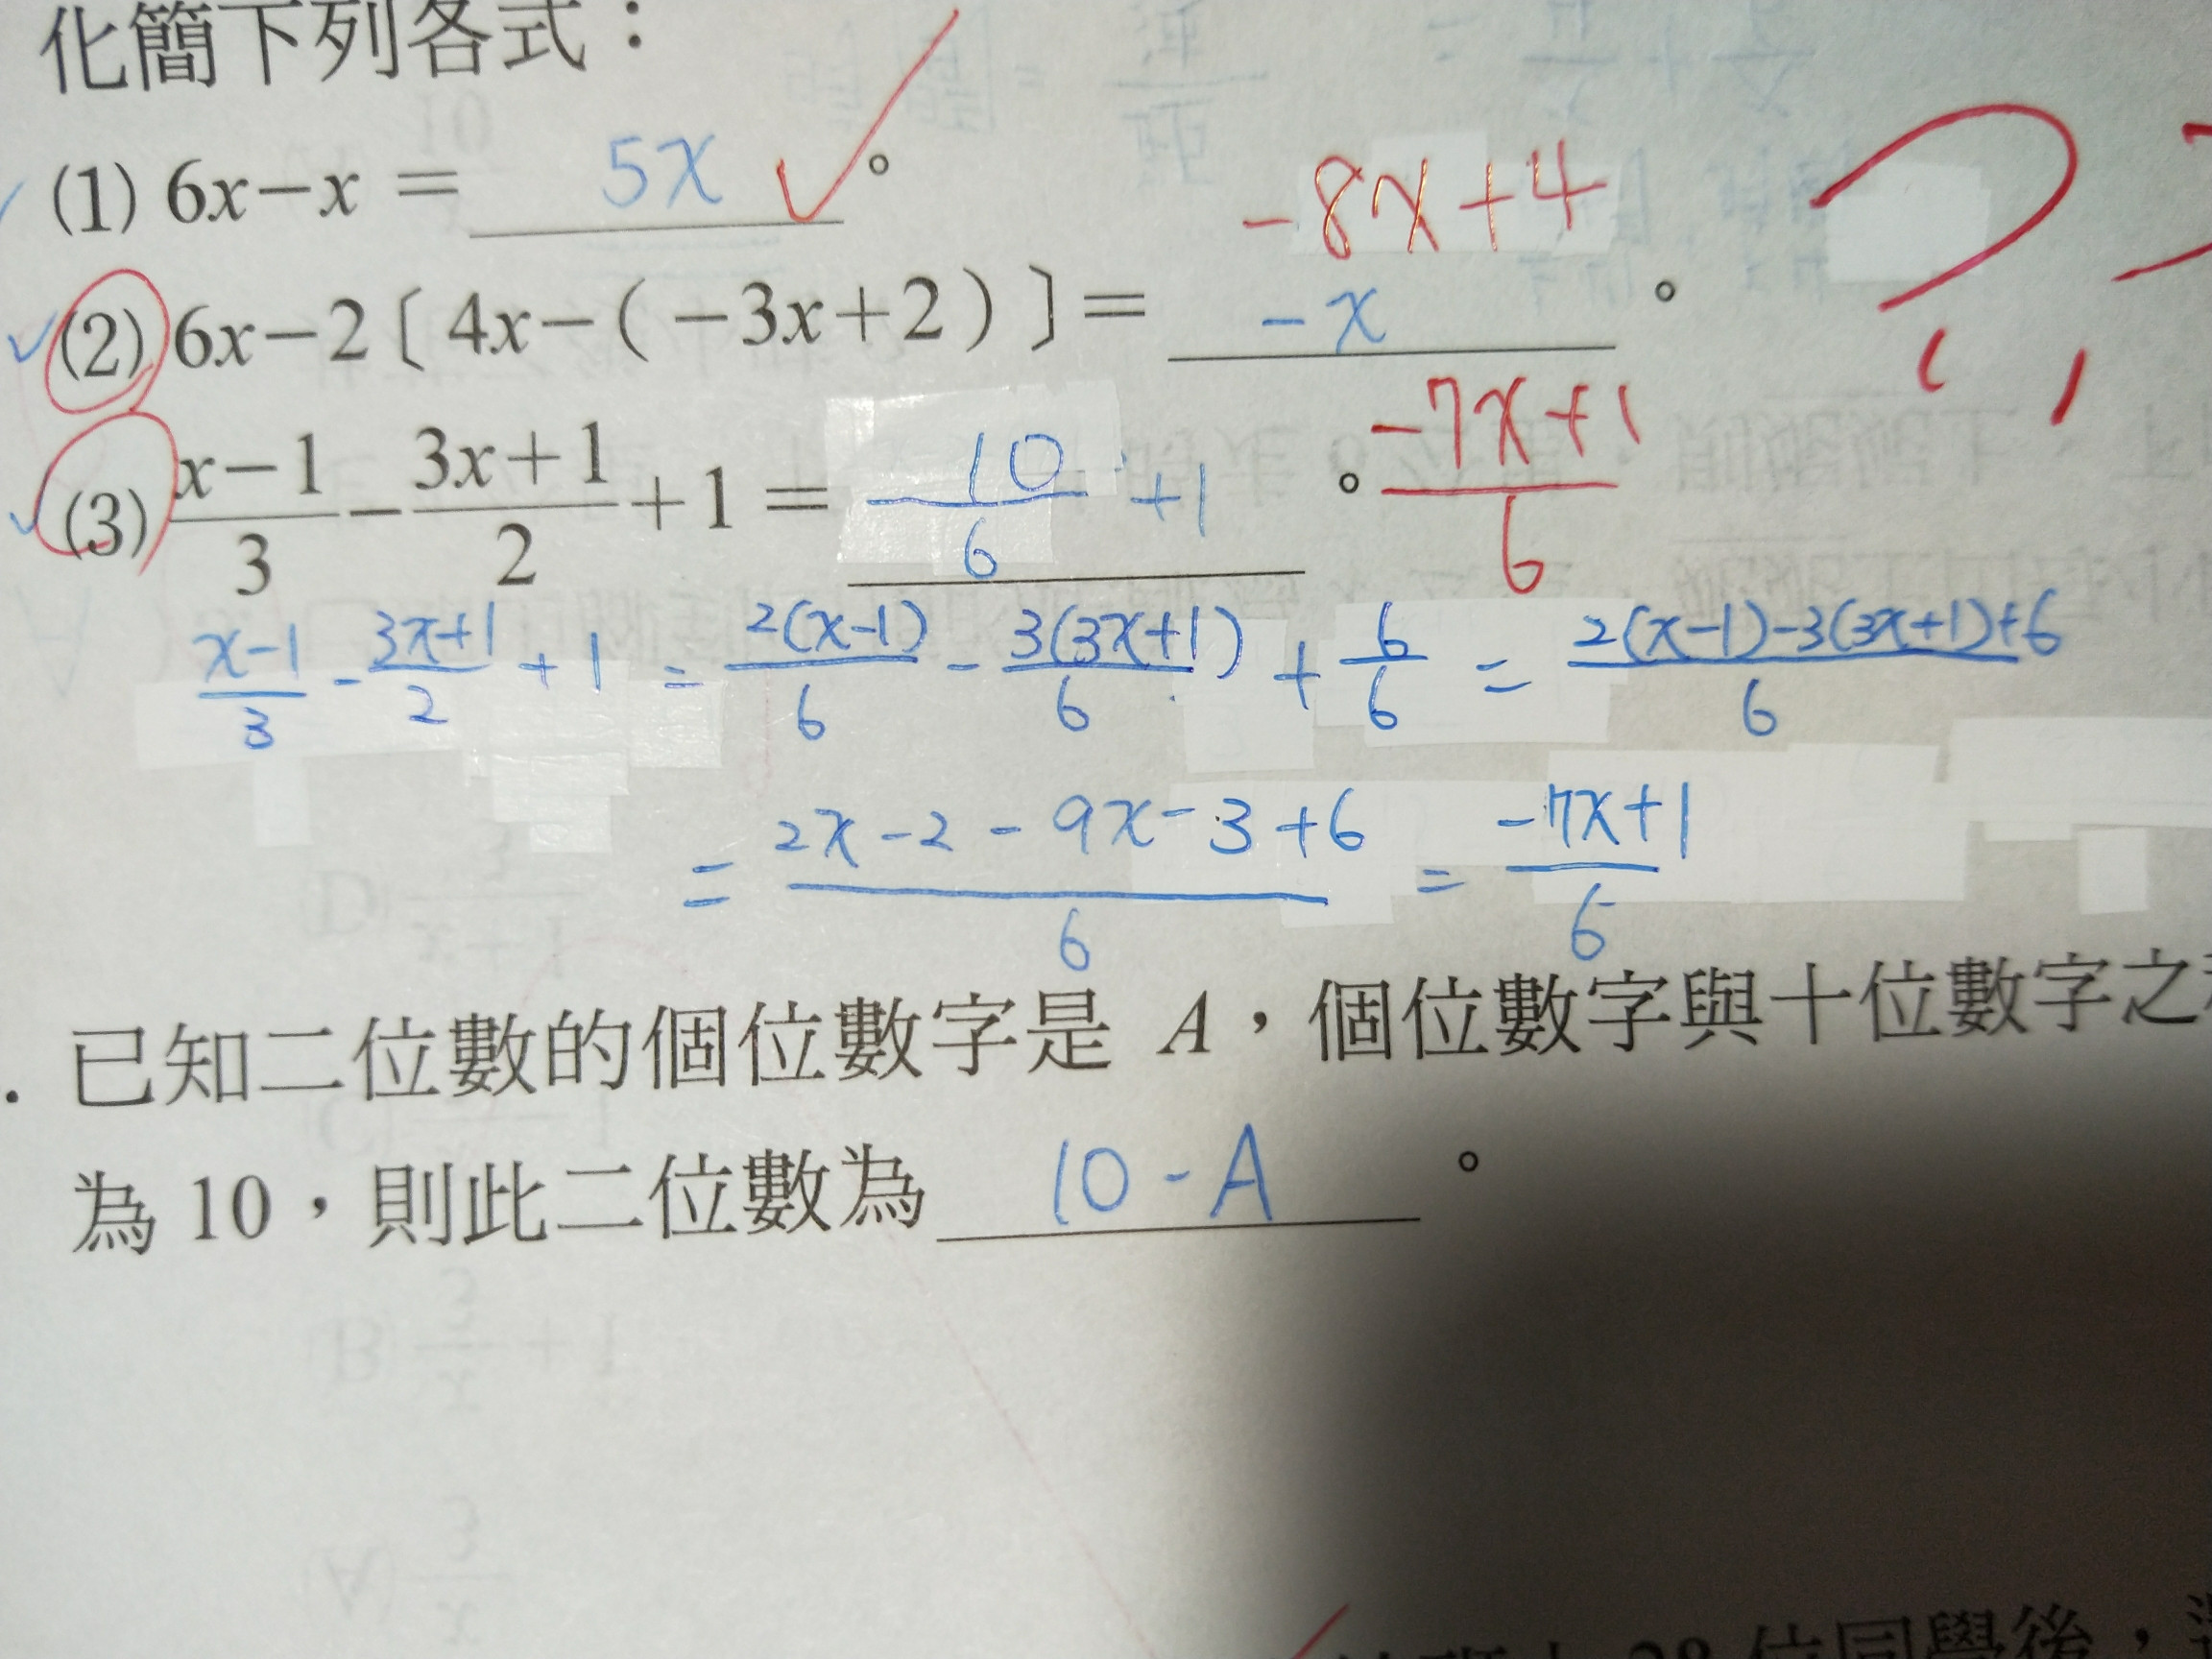 化簡下列各式：
(1) 6x－x ＝ 5x 。
-8x+4
(2) 6x－2〔 4x－( －3x＋2 ) 〕＝ -x 。
(3) \frac{x－1}{3}－\frac{3x＋1}{2}＋1＝ \frac{10}{6} +1 。 \frac{-7x+1}{6}
\frac{x-1}{3} - \frac{3x+1}{2} + 1 = \frac{2(x-1)}{6} - \frac{3(3x+1)}{6} + \frac{6}{6} = \frac{2(x-1)-3(3x+1)+6}{6}
= \frac{2x-2-9x-3+6}{6} = \frac{-7x+1}{6}
. 已知二位數的個位數字是 A，個位數字與十位數字之
為 10，則此二位數為 10-A 。
28 位同學後，